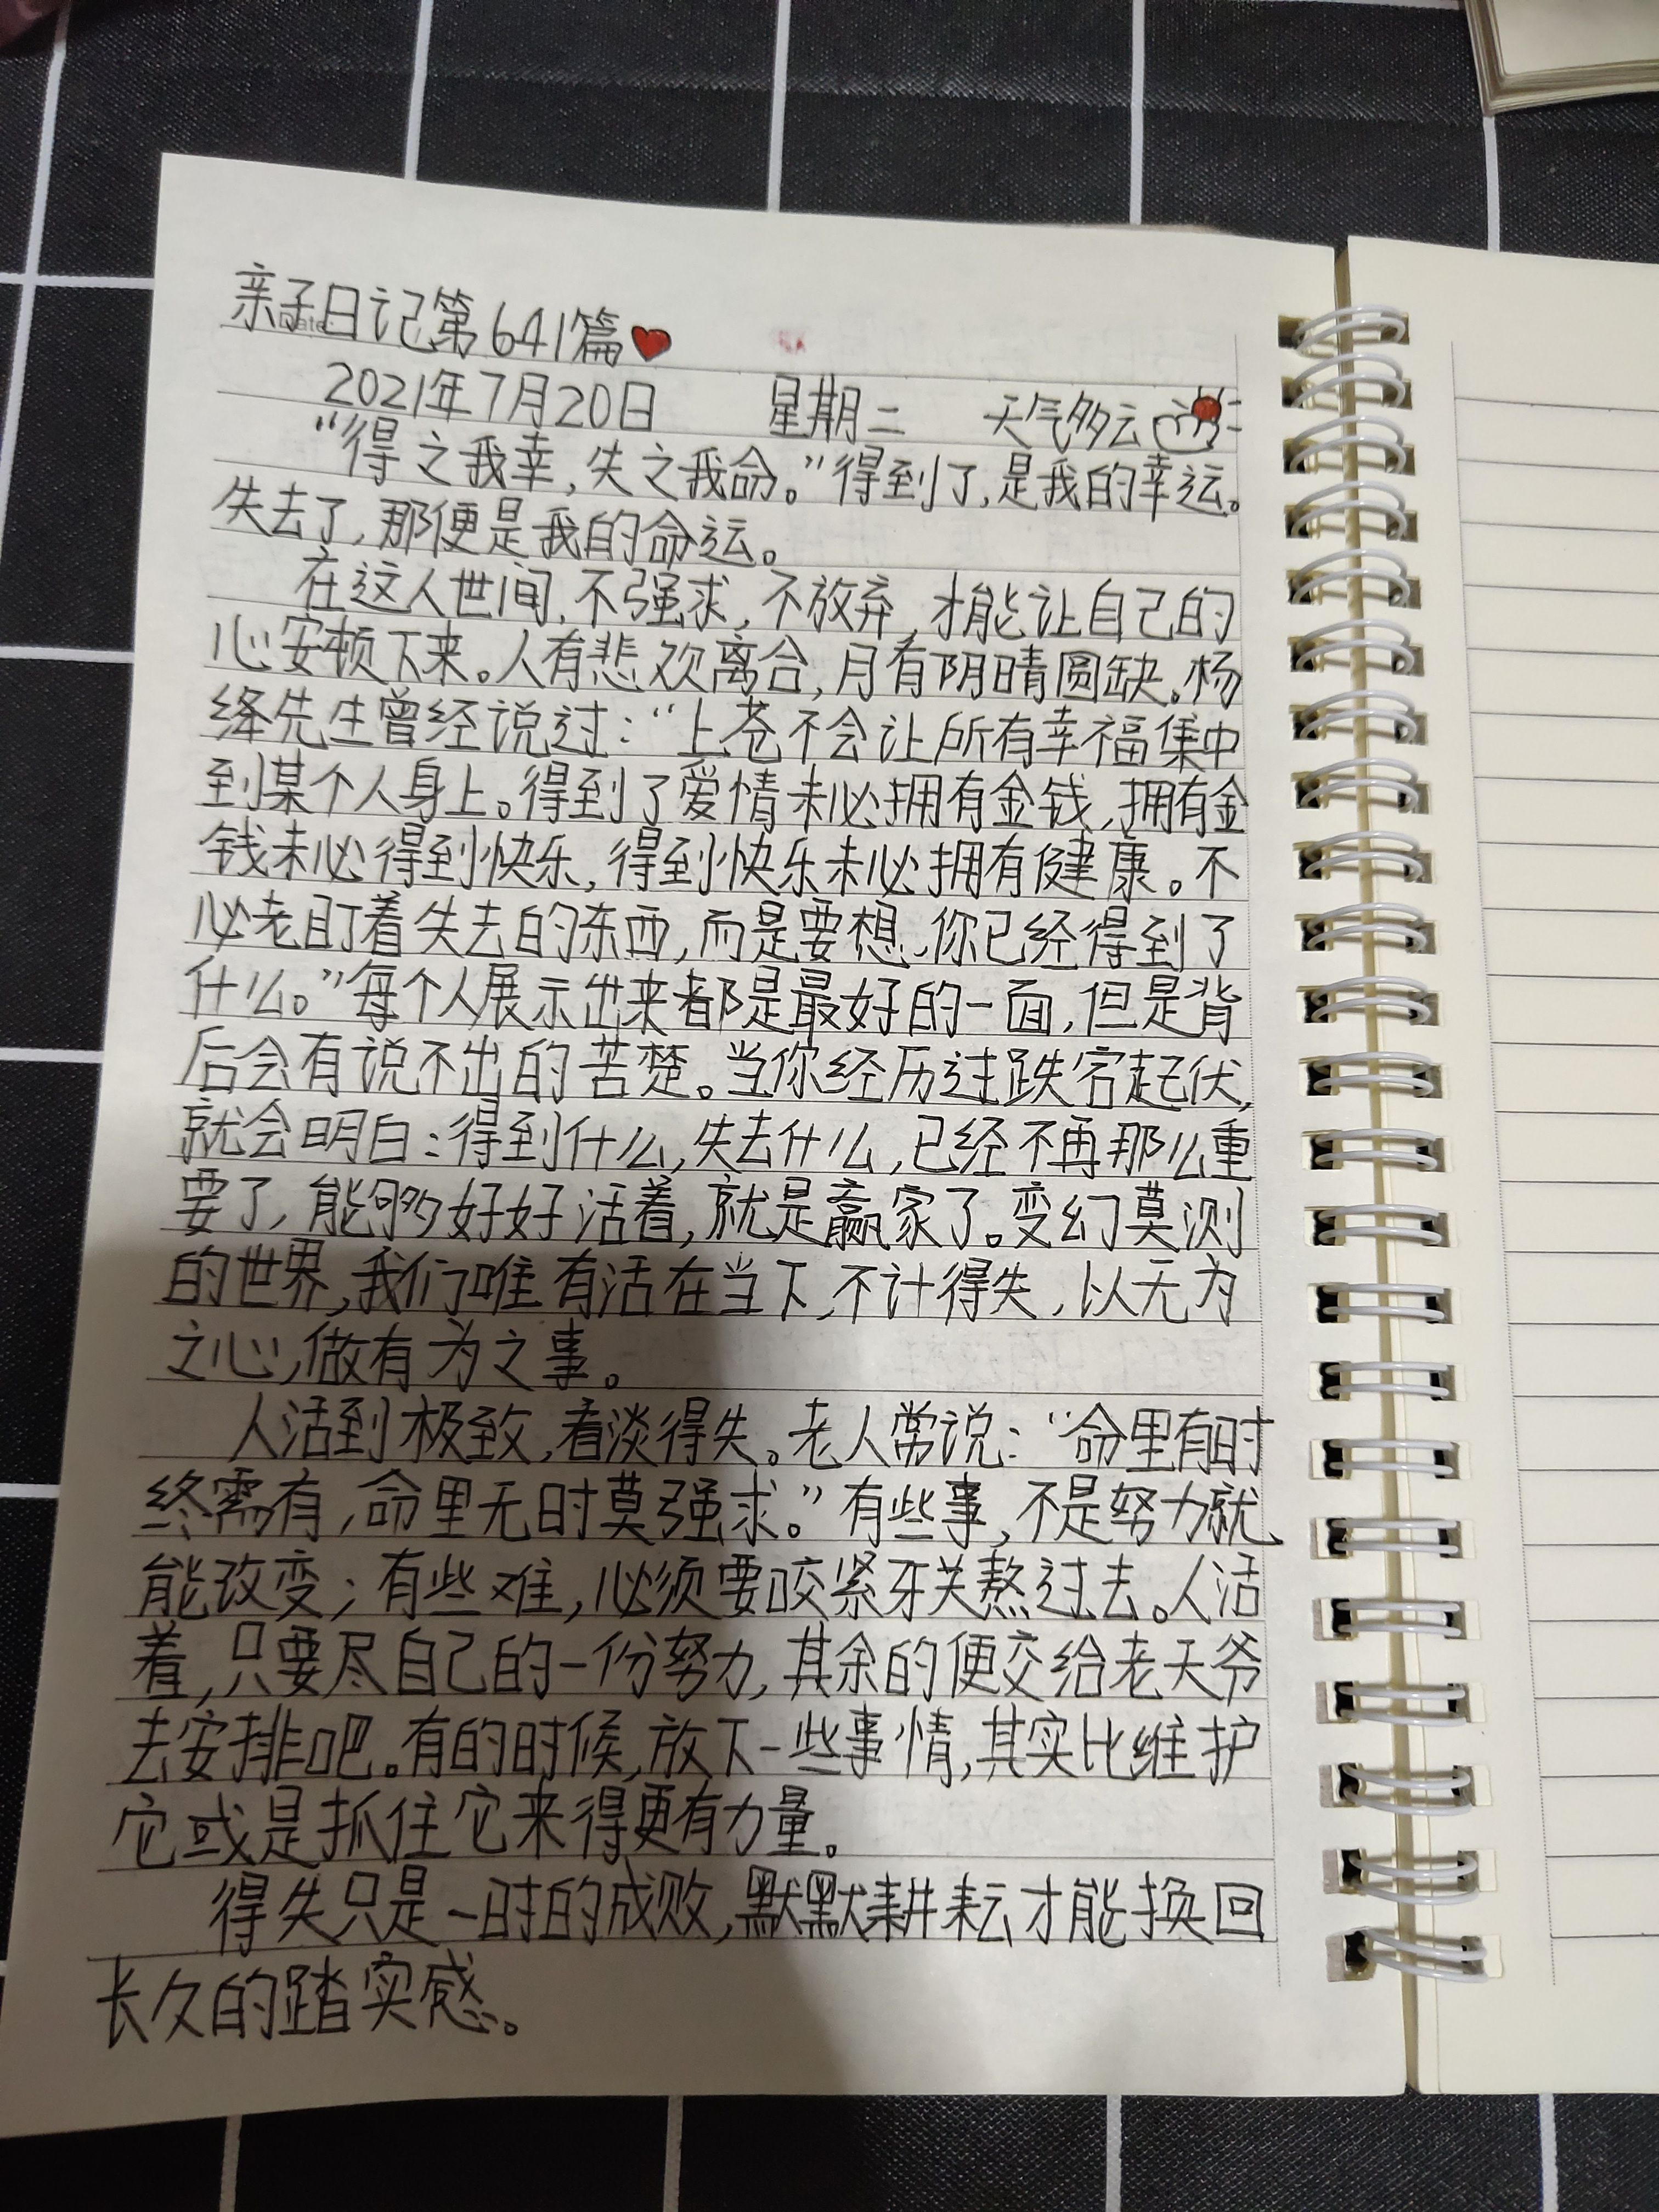 亲子日记第641篇
2021年7月20日 星期二 天气多云
“得之我幸,失之我命。”得到了,是我的幸运。
失去了,那便是我的命运。
在这人世间,不强求,不放弃,才能让自己的
心安顿下来。人有悲欢离合,月有阴晴圆缺。杨
绛先生曾经说过:“上苍不会让所有幸福集中
到某个人身上。得到了爱情未必拥有金钱,拥有金
钱未必得到快乐,得到快乐未必拥有健康。不
必老盯着失去的东西,而是要想,你已经得到了
什么。”每个人展示出来都是最好的一面,但是背
后会有说不出的苦楚。当你经历过跌宕起伏,
就会明白:得到什么,失去什么,已经不再那么重
要了,能够好好活着,就是赢家了。变幻莫测
的世界,我们唯有活在当下,不计得失,以无为
之心,做有为之事。
人活到极致,看淡得失。老人常说:“命里有时
终需有,命里无时莫强求。”有些事,不是努力就
能改变;有些难,必须要咬紧牙关熬过去。人活
着,只要尽自己的一份努力,其余的便交给老天爷
去安排吧。有的时候,放下一些事情,其实比维护
它或是抓住它来得更有力量。
得失只是一时的成败,默默耕耘才能换回
长久的踏实感。